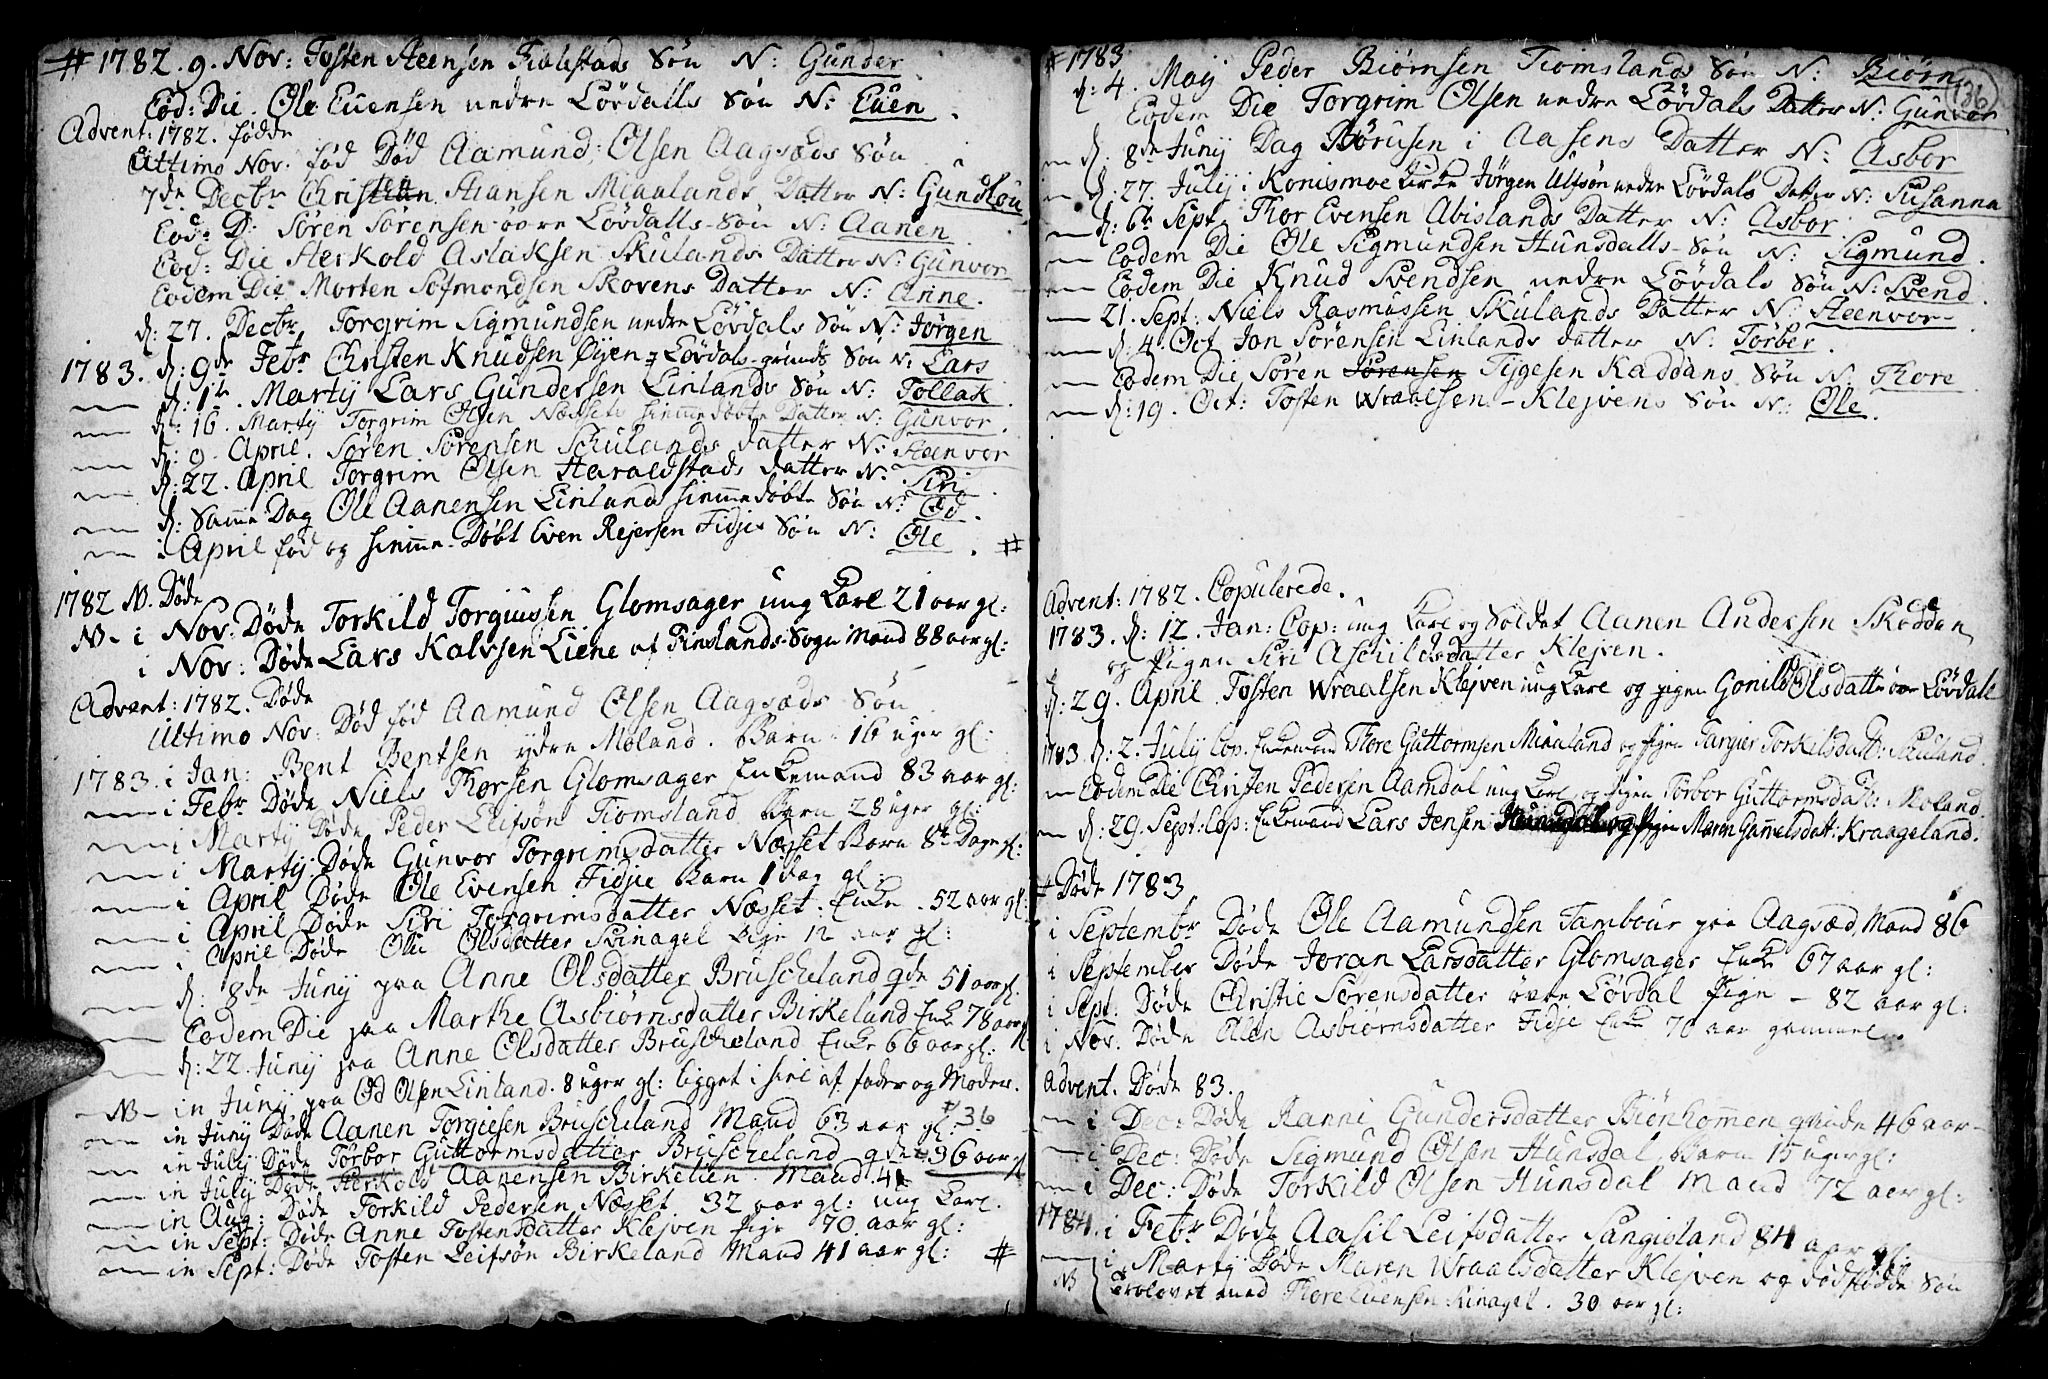 # 1782. 9. Nov: Tosten Steensen Fiælestads Søn N: Gunder
Eod: Die. Ole Euensen nedre Lövdalls Søn N: Euen.
Advent: 1782. fødde
Ultimo Nov. fød Død Aamund Olsen Aagsæds Søn
7de Decbr Christen Stiansen Miaalands Datter N: Gundlou
Eod: D: Søren Sørensen øvre Lövdalls Søn N: Aanen
Eod: Die Sterkold Aslaksen Skulands Datter N: Gunvor
Eodem Die Morten Sofmondsen Skovens Datter N: Anne.
d: 27. Decbr Torgrim Sigmundsen nedre Lövdals Søn N: Jørgen
1783. d: 9de Febr Christen Knudsen Øyen Lövdals grunds Søn N: Lars
d: 1te Martij Lars Gundersen Linlands Søn N: Tollak.
d: 16. Martij Torgrim Olsen Næssets hiemmedøbte Datter N: Gunvor.
d: 9 April. Søren Sörensen Schulands datter N: Steenvor
d: 22. April Torgrim Olsen Haraldstads datter N: Siri.
d: Samme Dag Ole Aanensen Linlands hiemmedøbte Søn N: Od.
i April fød og hiemme Døbt Even Rejersen Fidjes Søn N: Ole. #
1782 N. Døde
NB- i Nov: Døde Torkild Torgiussen Glomsager ung Karl 21 aar gl:
i Nov: Døde Lars Kalvsen Liene af Finslands Sogn Mand 88 aar gl:
Advent: 1782. Døde
Ultimo Nov: Død fød Aamund Olsen Aagsæds Søn
1783. i Jan: Bent Bentsen ydre Moland. Barn 16 uger gl:
i Febr Døde Niels Thorsen Glomsager Enkemand 83 aar gl:
i Martij Døde Peder Leifsøn Tiomsland Barn 28 uger gl:
i Martij Døde Gunvor Torgrimsdatter Næsset Barn 8te Dage gl:
i April Døde Ole Evensen Fidjie Barn 1 dag gl:
i April Døde Siri Torgrimsdatter Næsset: Enke. 52 aar gl:
i April Døde Olu Olsdatter Svinagel Pige 12 aar gl:
d: 8de Junij paa Anne Olsdatter Bruscheland gde 51 aar gl.
Eodem Die paa Marthe Asbiørnsdatter Birkeland Enke 78 aar gl
d: 22. Junij paa Anne Olsdatter Bruscheland Enke 66 aar gl:
NB- in Junij paa Od Olsen Linland. 8 uger gl: ligget i hiel af fader og Moder.
in Junij Døde Aanen Torgiesen Bruscheland Mand 63 aar gl: 36
in Julij Døde Torbor Guttormsdatter Bruscheland gde 36 aar gl
in Julij Døde Sterkold Aanensen Birkelien Mand 4
in Aug: Døde Torkild Pedersen Næsset 32 aar gl: ung Karl.
in Sept: Døde Anne Tostensdatter Klejven Pige 70 aar gl:
in Sept: Døde Tosten Leifsön Birkeland Mand 41 aar gl: #
# 1783
136
d: 4. Maij Peder Biörnsen Tiomslands Søn N: Biørn
Eodem Die Torgrim Olsen nedre Lövdals Datter N: Gunvor
d: 8de Junij Dag Börusen i Aasens Datter N: Asbor
d: 27. Julij i Konismoe kirke Jörgen Ulfsön nedre Lövdals Datter N: Susanna
d: 6te Sept Thor Evensen Abislands Datter N: Asbor.
Eodem Die Ole Sigmundsen Hunsdalls Søn N: Sigmund.
Eodem Die Knud Svendsen nedre Lövdals Søn N: Svend.
21. Sept: Niels Rasmussen Skulands Datter N: Steenvor
d: 4. Oct Jon Sörensen Linlands datter N: Torber.
Eodem Die Søren Sørensen Tijgesen Kaddans Søn N: Thore
d: 19. Oct: Tosten Wraalsen Klejvens Søn N: Ole.
Advent: 1782. Copulerede.
1783. d: 12. Jan: Cop: ung Karl og Soldat Aanen Andersen Skoddan
og Pigen Siri Aschildsdatter Klejven.
d: 29. April Tosten Wraalsen Klejven ung Karl og pigen Gonild Olsdatter övre Lövdall
1783 d: 2. Julij Cop. Enkemand Thore Guttormsen Miaaland og Pigen Targier Torkilsdatt: Skuland.
Eodem Die Christen Pedersen Aamdal ung Karl og Pigen Torbor Guttormsdatt: Moland.
d: 29. Sept: Cop: Enkemand Lars Jensen og Pigen Maren Gammelsdatt: Kraageland.
# Døde 1783
i Septembr Døde Ole Aamundsen Tambour paa Aagsæd, Mand 86
i September Døde Joran Larsdatter Glomsager Enke 67 aar gl:
i Sept: Døde Christie Sörensdatter övre Lövdal Pige - 82 aar gl:
i Nov: Døde Ellen Asbiørnsdatter Fidje Enke 70 aar gammel.
Advent. Døde 83.
i Dec: Døde Ranni Gundersdatter Biönhommen qvinde 46 aar
i Dec: Døde Sigmund Olsen Hunsdal Barn 15 uger gl:
i Dec: Døde Torkild Olsen Hunsdal Mand 72 aar gl:
1784. i Febr Døde Aasil Leifsdatter Sangiesland 84 aar gl:
i Martij Døde Maren Wraalsdatter Klejven og dødfødde Søn
NB trolovet med Thore Euensen Svinagel. 30 aar gl: